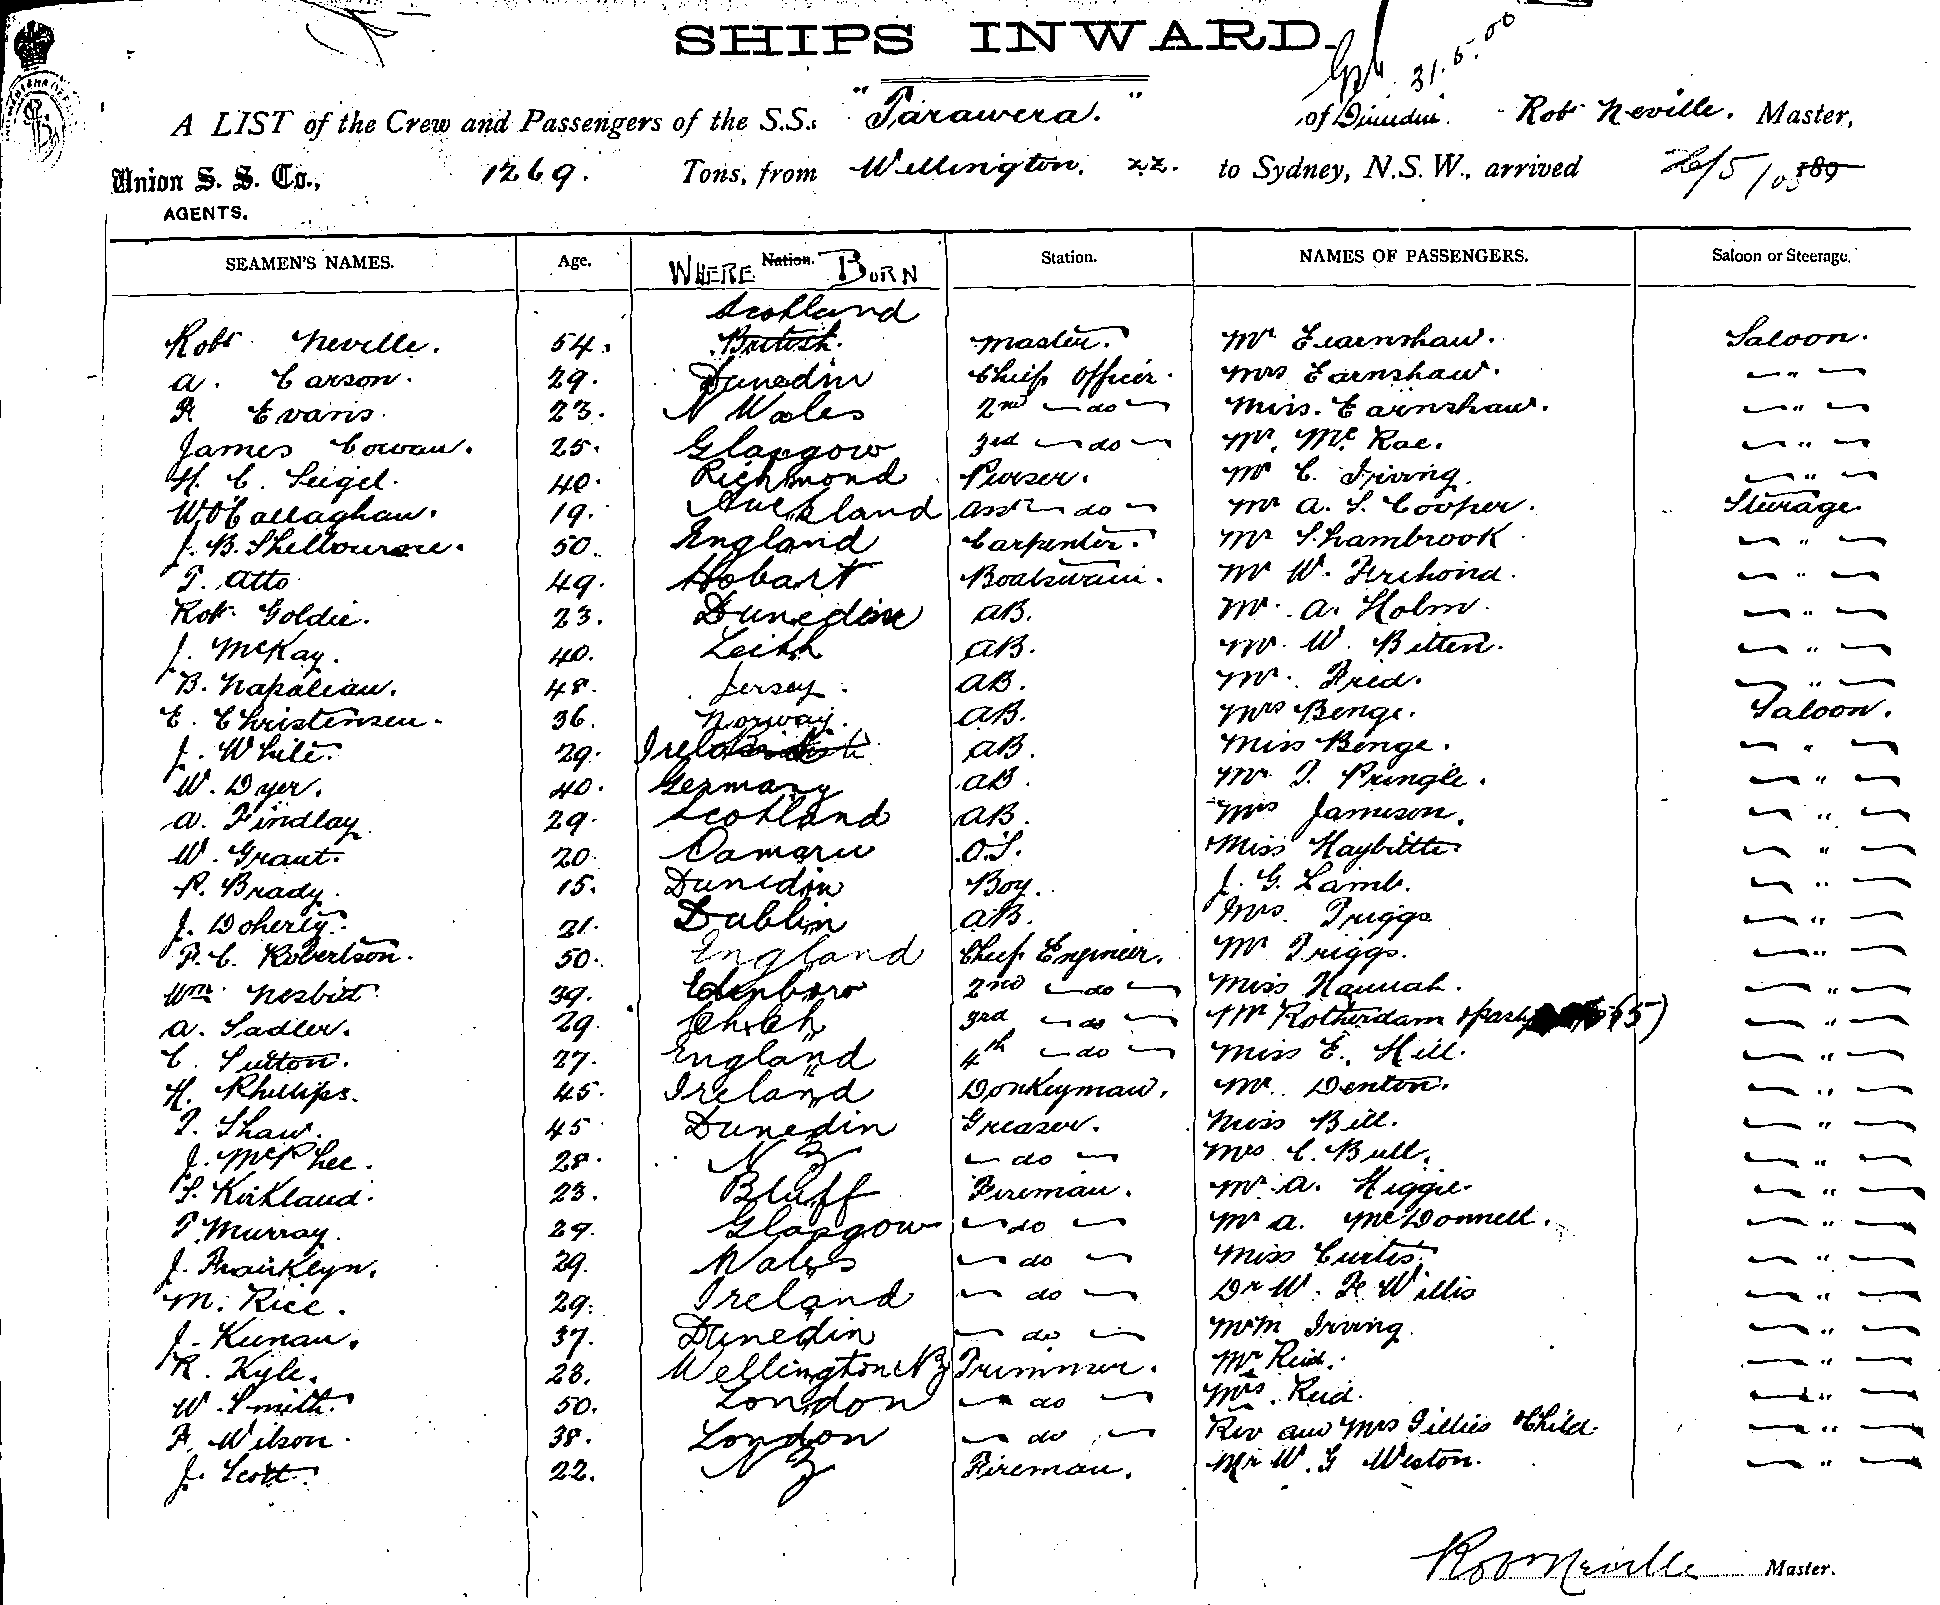 SHIPS INWARD.
31.5.00
A LIST of the Crew and Passengers of the S.S. "Tarawera." of Dunedin. Robt Neville. Master,
Union S. S. Co., 1269. Tons, from Wellington. N.Z. to Sydney, N.S.W., arrived
AGENTS.
SEAMEN'S NAMES. Age. Nation. WHERE BORN Station. NAMES OF PASSENGERS. Saloon or Steerage.
Scotland
Robt Neville. 54. British. Master. Mr Earnshaw. Saloon.
A. Carson. 29. Dunedin Chief Officer. Mrs Earnshaw. — " —
R Evans. 23. N Wales 2nd — do — Miss. Earnshaw. — " —
James Cowan. 25. Glasgow 3rd — do — Mr. McRae. — " —
H. C. Seigel. 40. Richmond Purser. Mr C. Irving. — " —
W O'Callaghan. 19. Auckland asst — do — Mr A. S. Cooper. Steerage
J. B. Shelbourne. 50. England Carpenter. Mr Shambrook — " —
T. Atto 49. Hobart Boatswain. Mr W. — " —
Robt Goldie. 23. Dunedin AB. Mr. A. Holm. — " —
J. McKay. 40. Leith AB. Mr. W. Bitten. — " —
B. Napoleau. 48. Jersey. AB. Mr. Fried. — " —
E. Christensen. 36. Norway. AB. Mrs Benge. Saloon.
J. White. 29. Ireland AB. Miss Benge. — " —
W. Dyer. 40. Germany AB. Mr T. Pringle. — " —
A. Findlay 29. Scotland AB. Mrs Jamieson. — " —
W. Grant. 20. Oamaru O.S. Miss Haybittle — " —
P. Brady. 15. Dunedin Boy. J. G. Lamb. — " —
J. Doherty. 21. Dublin AB. Mrs. Triggs — " —
P. C. Robertson. 50. England Chief Engineer. Mr Triggs. — " —
Wm Nesbitt 39. Edinboro 2nd — do — Miss Hannah. — " —
A. Sadler. 29. Chch 3rd — do — Mr Rotherdam & party (5) — " —
C. Sutton. 27. England 4th — do — Miss E. Hill. — " —
H. Phillips. 45. Ireland Donkeyman. Mr. Denton. — " —
T. Shaw. 45 Dunedin Greaser. Miss Bill. — " —
J. McPhee. 28. N Z — do — Mrs C. Bull. — " —
S. Kirkland. 23. Bluff Fireman. Mr A. Higgie. — " —
T. Murray. 29. Glasgow — do — Mr A. McDonnell. — " —
J. Franklyn. 29. Wales — do — Miss Curtis. — " —
M. Rice. 29. Ireland — do — Dr W. F. Willis — " —
J. Kunau. 37. Dunedin — do — Mr M Irving. — " —
R. Kyle. 28. Wellington NZ Trimmer. Mr Reid. — " —
W. Smith. 50. London — do — Mrs. Reid. — " —
F. Wilson. 38. London — do — Rev and Mrs Gillies & Child. — " —
J. Scott. 22. N Z Fireman. Mr W. G Weston. — " —
Robt Neville Master.